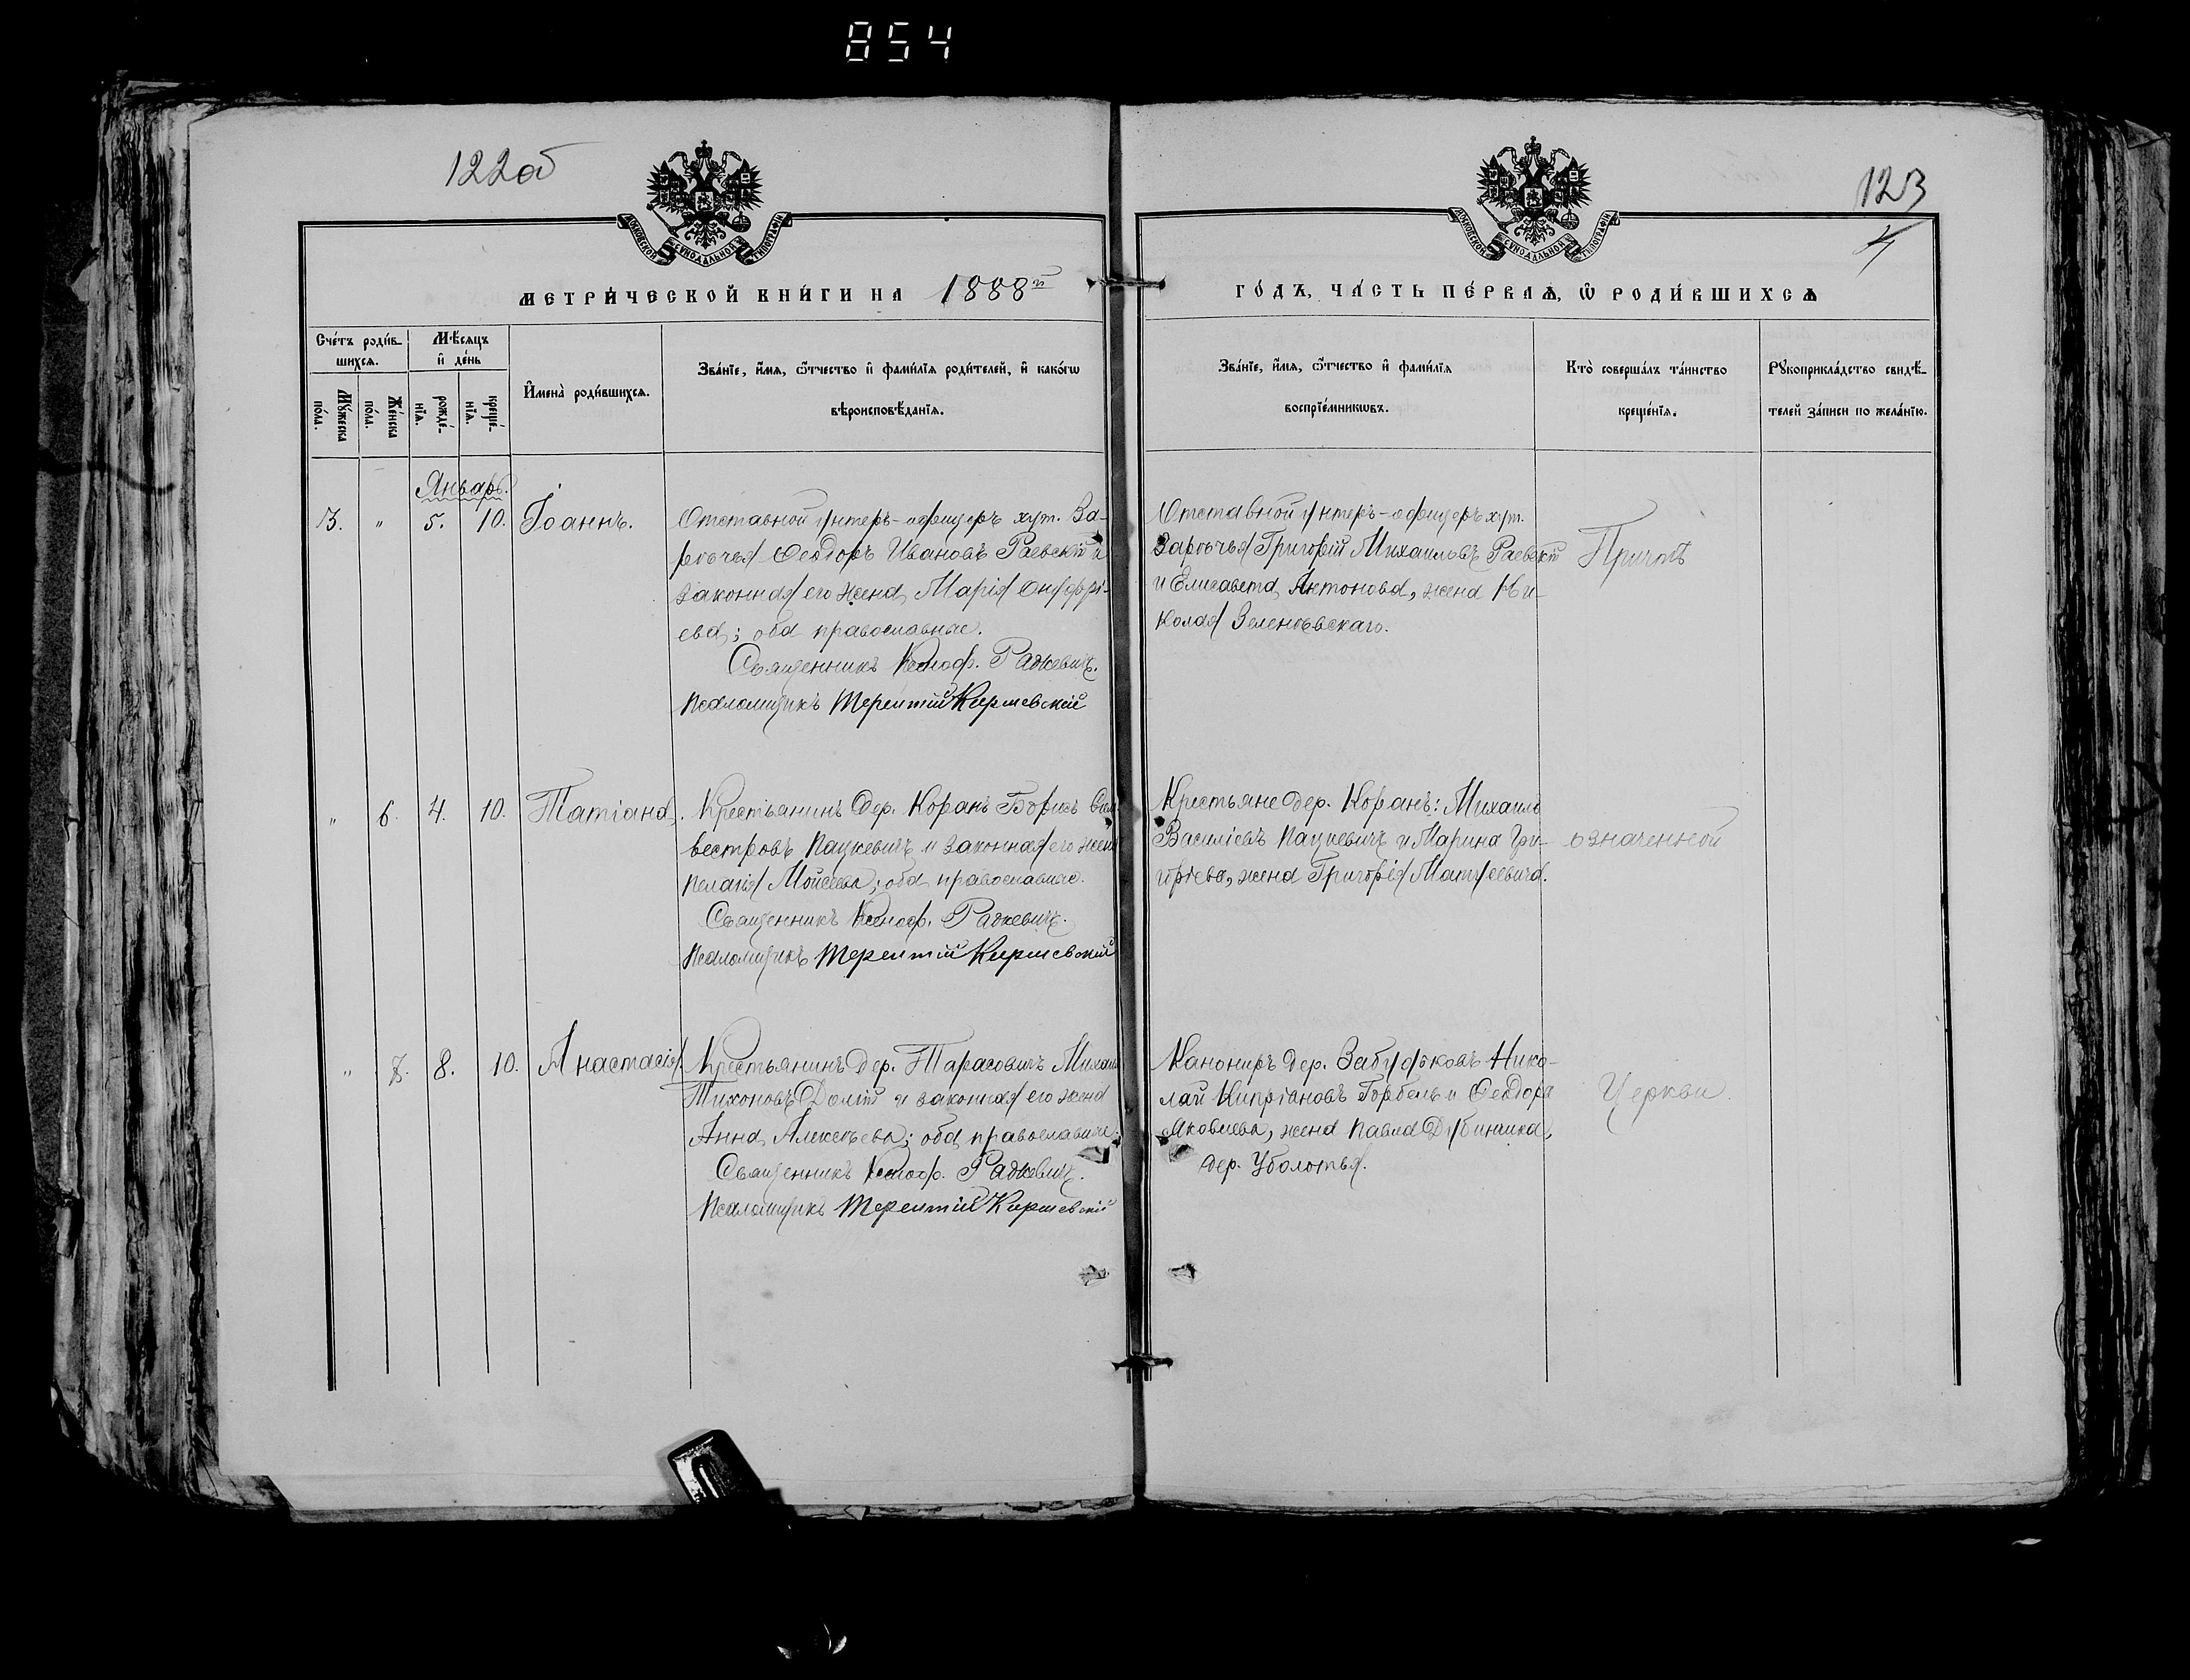 854
122об
123
4
МОСКОВСКОЙ СѴНОДАЛЬНОЙ ТИПОГРАФІИ
МОСКОВСКОЙ СѴНОДАЛЬНОЙ ТИПОГРАФІИ
МЕТРИ́ЧЕСКОЙ КНИ́ГИ НА 1888й
ГО́ДЪ, ЧА́СТЬ ПЕ́РВАѦ, Ѿ РОДИ́ВШИХСѦ
Сче́тъ роди́в-
шихсѧ.
Мѣ́сѧцъ
и҆ де́нь
Мꙋ́жеска
по́ла.
Же́нска
по́ла.
рожде́-
нїѧ.
креще́-
нїѧ.
И҆мена̀ роди́вшихсѧ.
Зва́нїе, и҆́мѧ, ѻ҆́тчество и҆ фами́лїѧ роди́телей, и҆ како́гѡ
вѣроисповѣ́данїѧ.
Зва́нїе, и҆́мѧ, ѻ҆́тчество и҆ фами́лїѧ
воспрїе́мникѡвъ.
Кто̀ соверша́лъ та́инство
креще́нїѧ.
Рꙋкоприкла́дство свидѣ́-
телей за́писи по жела́нїю.
Январь.
3. " 5. 10. Іоаннъ.
Отставной унтеръ-офицеръ хут. За-
рѣчья Ѳеодоръ Ивановъ Раевскій и
законная его жена Марія Онуфрі-
ева; оба православные.
Священникъ Ксеноф. Радкевичъ.
Псаломщикъ Терентій Киршевскій
Отставной унтеръ-офицеръ хут.
Зарѣчья Григорій Михаиловъ Раевскій
и Елисавета Антонова, жена Ни-
колая Зеленѣвскаго.
Причтъ
" 6. 4. 10. Татіана.
Крестьянинъ дер. Коранъ Борисъ Сил
вестровъ Пацкевичъ и законная его жена
Пелагія Моисеева; оба православные.
Священникъ Ксеноф. Радкевичъ.
Псаломщикъ Терентій Киршевскій
Крестьяне дер. Коранъ: Михаилъ
Василіевъ Пацкевичъ и Марина Гри-
горіева, жена Григорія Матусевича.
означенной
" 7. 8. 10. Анастасія.
Крестьянинъ дер. Тарасовичъ Михаилъ
Тихоновъ и законная его жена
Анна Алексѣева; оба православные.
Священникъ Ксеноф. Радкевичъ.
Псаломщикъ Терентій Киршевскій
Канониръ дер. Нико-
лай Кипріановъ Горбель и Ѳеодора
Яковлева, жена Павла Дубинчика,
дер. Уболотья.
Церкви